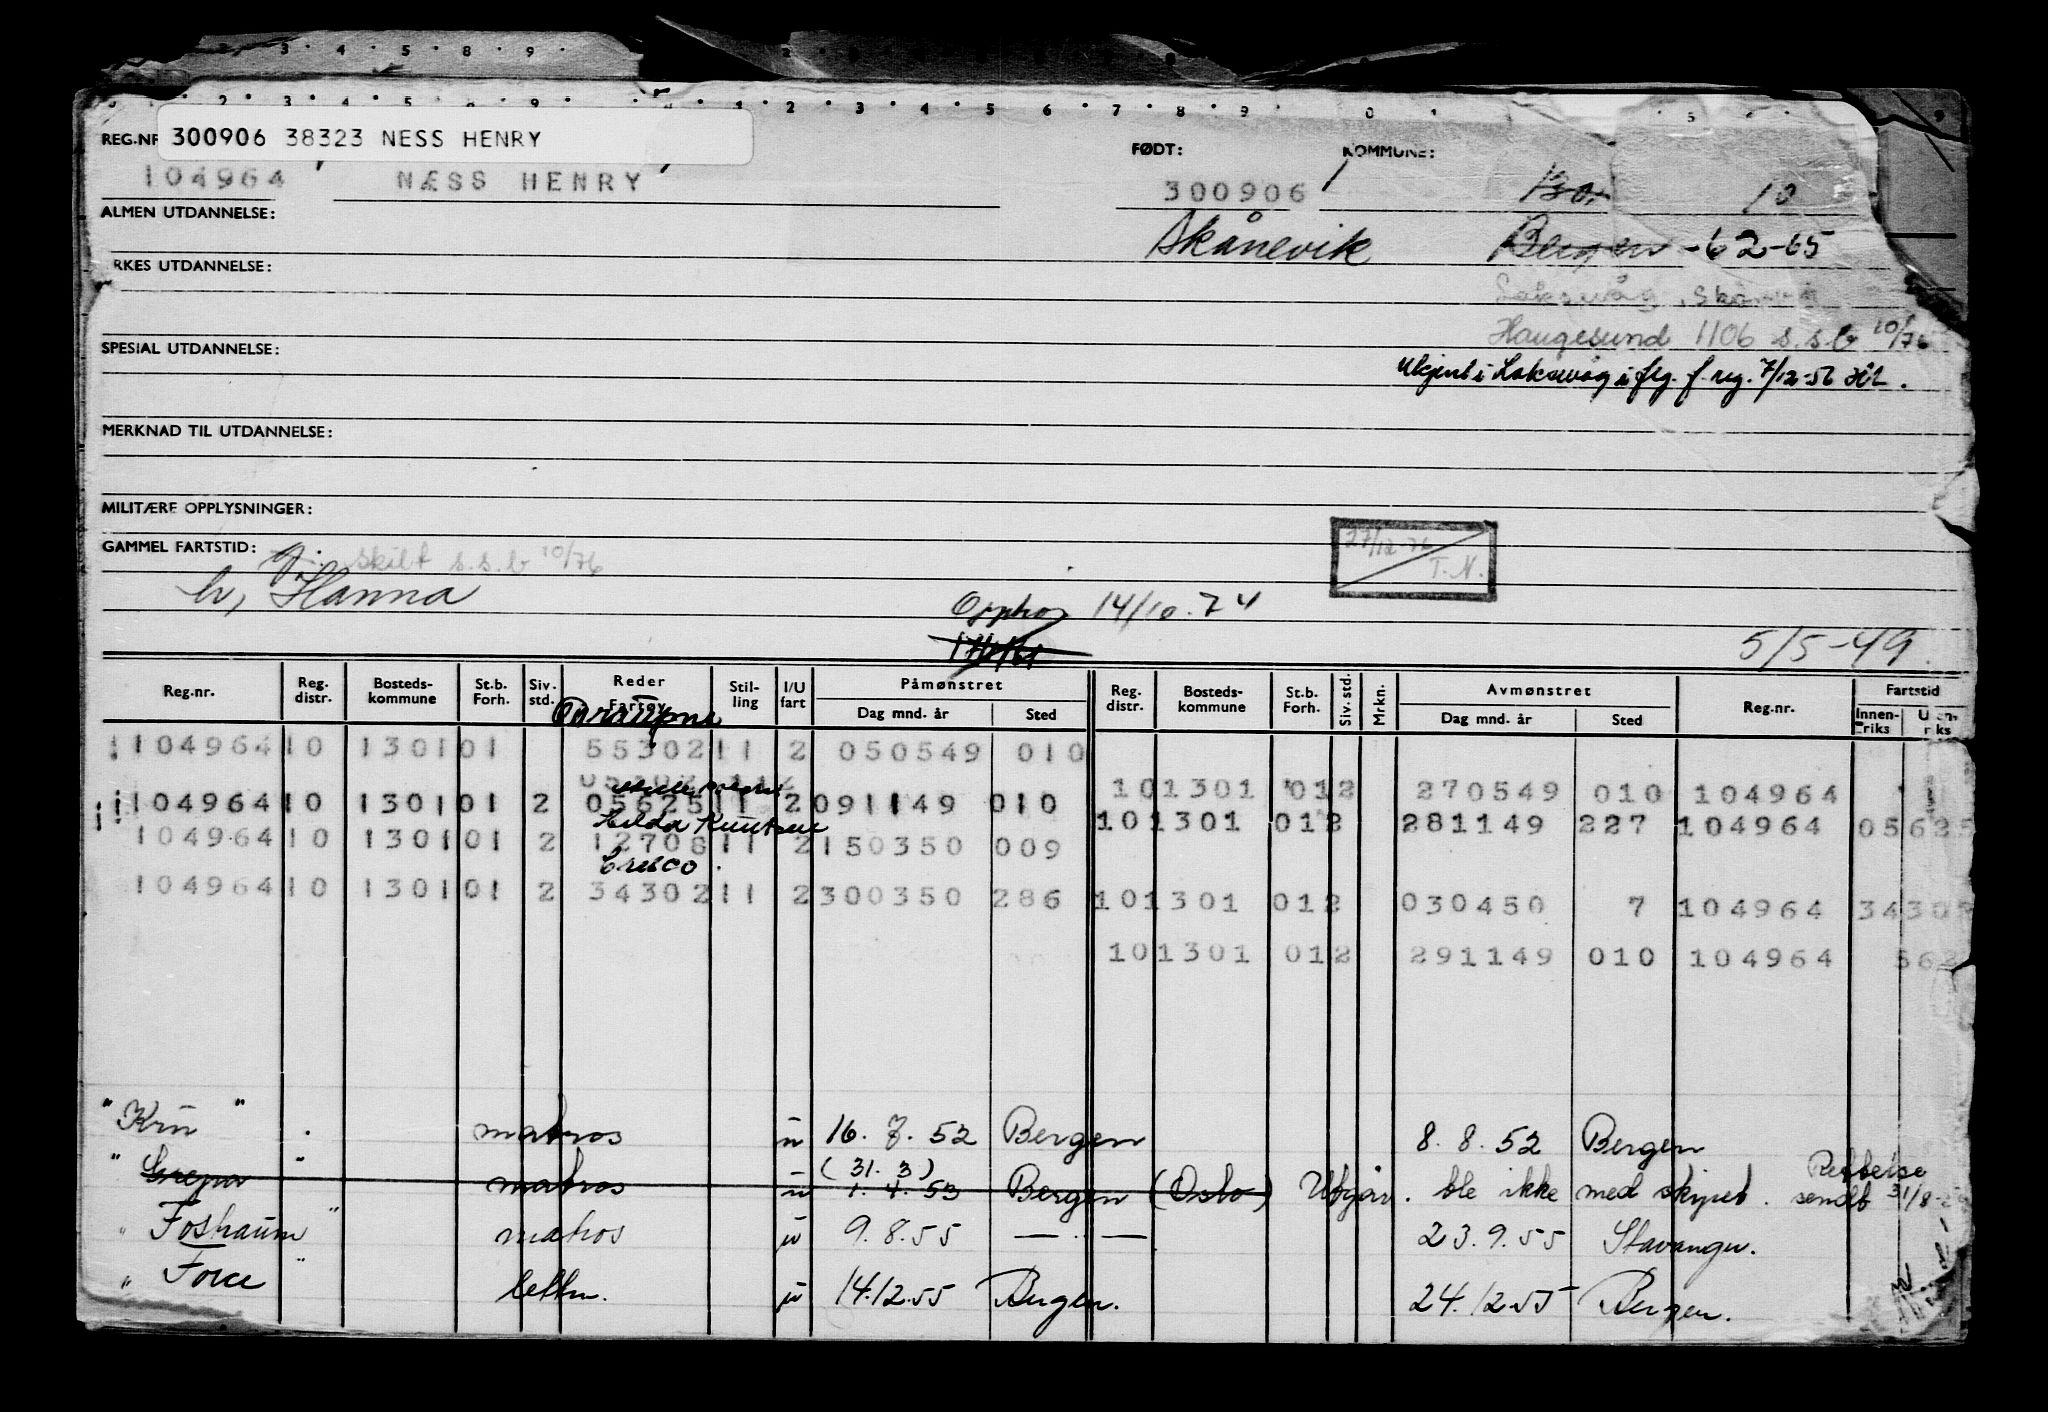 2 · 3 · 4 · 5 · 8 · 9 ·
2 · 3 · 4 · 5 · 8 · 9 · 1 · 2 · 3 · 4 · 5 · 6 · 7 · 8 · 9 · 0 1 5
REG.NR 300906 38323 NESS HENRY FØDT: KOMMUNE:
104964 NÆSS HENRY 300906 10
ALMEN UTDANNELSE: Skånevik Bergen -62-65
RKES UTDANNELSE:
Laksevåg
Haugesund 1106 s.s.b 10/76
SPESIAL UTDANNELSE: Ukjent i Laksevåg i flg. f. reg. 7/12-56
MERKNAD TIL UTDANNELSE:
MILITÆRE OPPLYSNINGER:
GAMMEL FARTSTID: g. skilt s.s.b 10/76 27/12-76 T.N.
h, Hanna
Opphør 14/10.74
5/5-49
Reg.nr. Reg. distr. Bosteds-kommune St.b. Forh. Siv. std. Reder Fartøy Stil-ling I/U fart Påmønstret Dag mnd. år Sted Reg. distr. Bosteds-kommune St.b. Forh. Siv. std. Mrkn. Avmønstret Dag mnd. år Sted Reg.nr. Fartstid Innen-riks
104964 10 1301 01 55302 11 2 050549 010
101301 012 270549 010 104964
104964 10 1301 01 2 05625 11 2 091149 010
Hilda Knutsen 101301 012 281149 227 104964 05625
104964 10 1301 01 2 12708 11 2 150350 009
Cresco
104964 10 1301 01 2 34302 11 2 300350 286 101301 012 030450 7 104964 34302
101301 012 291149 010 104964 562
" Krin " matros u 16.7.52 Bergen 8.8.52 Bergen
" Grepa " matros u (31.3) 1.4.53 Bergen (Oslo) Utgår. ble ikke med skipet. Rettelse sendt 31/8-
" Foshaum " matros u 9.8.55 — · — 23.9.55 Stavanger.
" Force " lettm. u 14.12.55 Bergen. 24.12.55 Bergen.